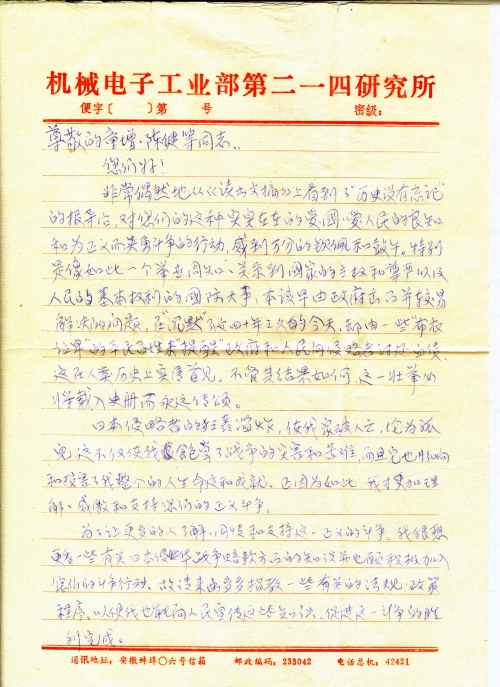 机械电子工业部第二一四研究所
便字〔 〕第 号 密级:
尊敬的童增、陈健等同志:
您们好!
非常偶然地从《读书文摘》上看到了"历史没有忘记"
的报导后,对您们的这种实实在在的爱国、爱人民的良知
和为正义而英勇斗争的行动,感到万分的钦佩和鼓午。特别
是像如此一个举世周知、关系到国家的主权和尊严以及
人民的基本权利的国际大事,本该早由政府出了并较易
解决的问题,在"沉默"了近四十年之久的今天,却由一些"布衣
位卑"的 百姓来"提醒"政府和人民向侵略者讨还血债,
这在人类历史上实属首见。不管其结果如何,这一壮举必
将载入史册而永远传颂。
日本侵略者的狂轰滥炸,使我家破人亡,沦为孤
儿,这不仅使我饱尝了战争的灾害和苦难,而且它也影响
和损害了我整个的人生命运和成就。正因为如此,我才更加理
解、感激和支持您们的正义斗争。
为了让更多的人了解、同情和支持这一正义的斗争,我很想
更多一些有关日本侵华战争赔款方面的知识并也愿积极加入
您们的斗争行列。故请来函多多指教一些有关的法规、政策
程序,以便我也能向人民宣传这些知识,促进这一斗争的胜
利完成。
通讯地址:安徽蚌埠〇六号信箱 邮政编码:233042 电话总机:42421